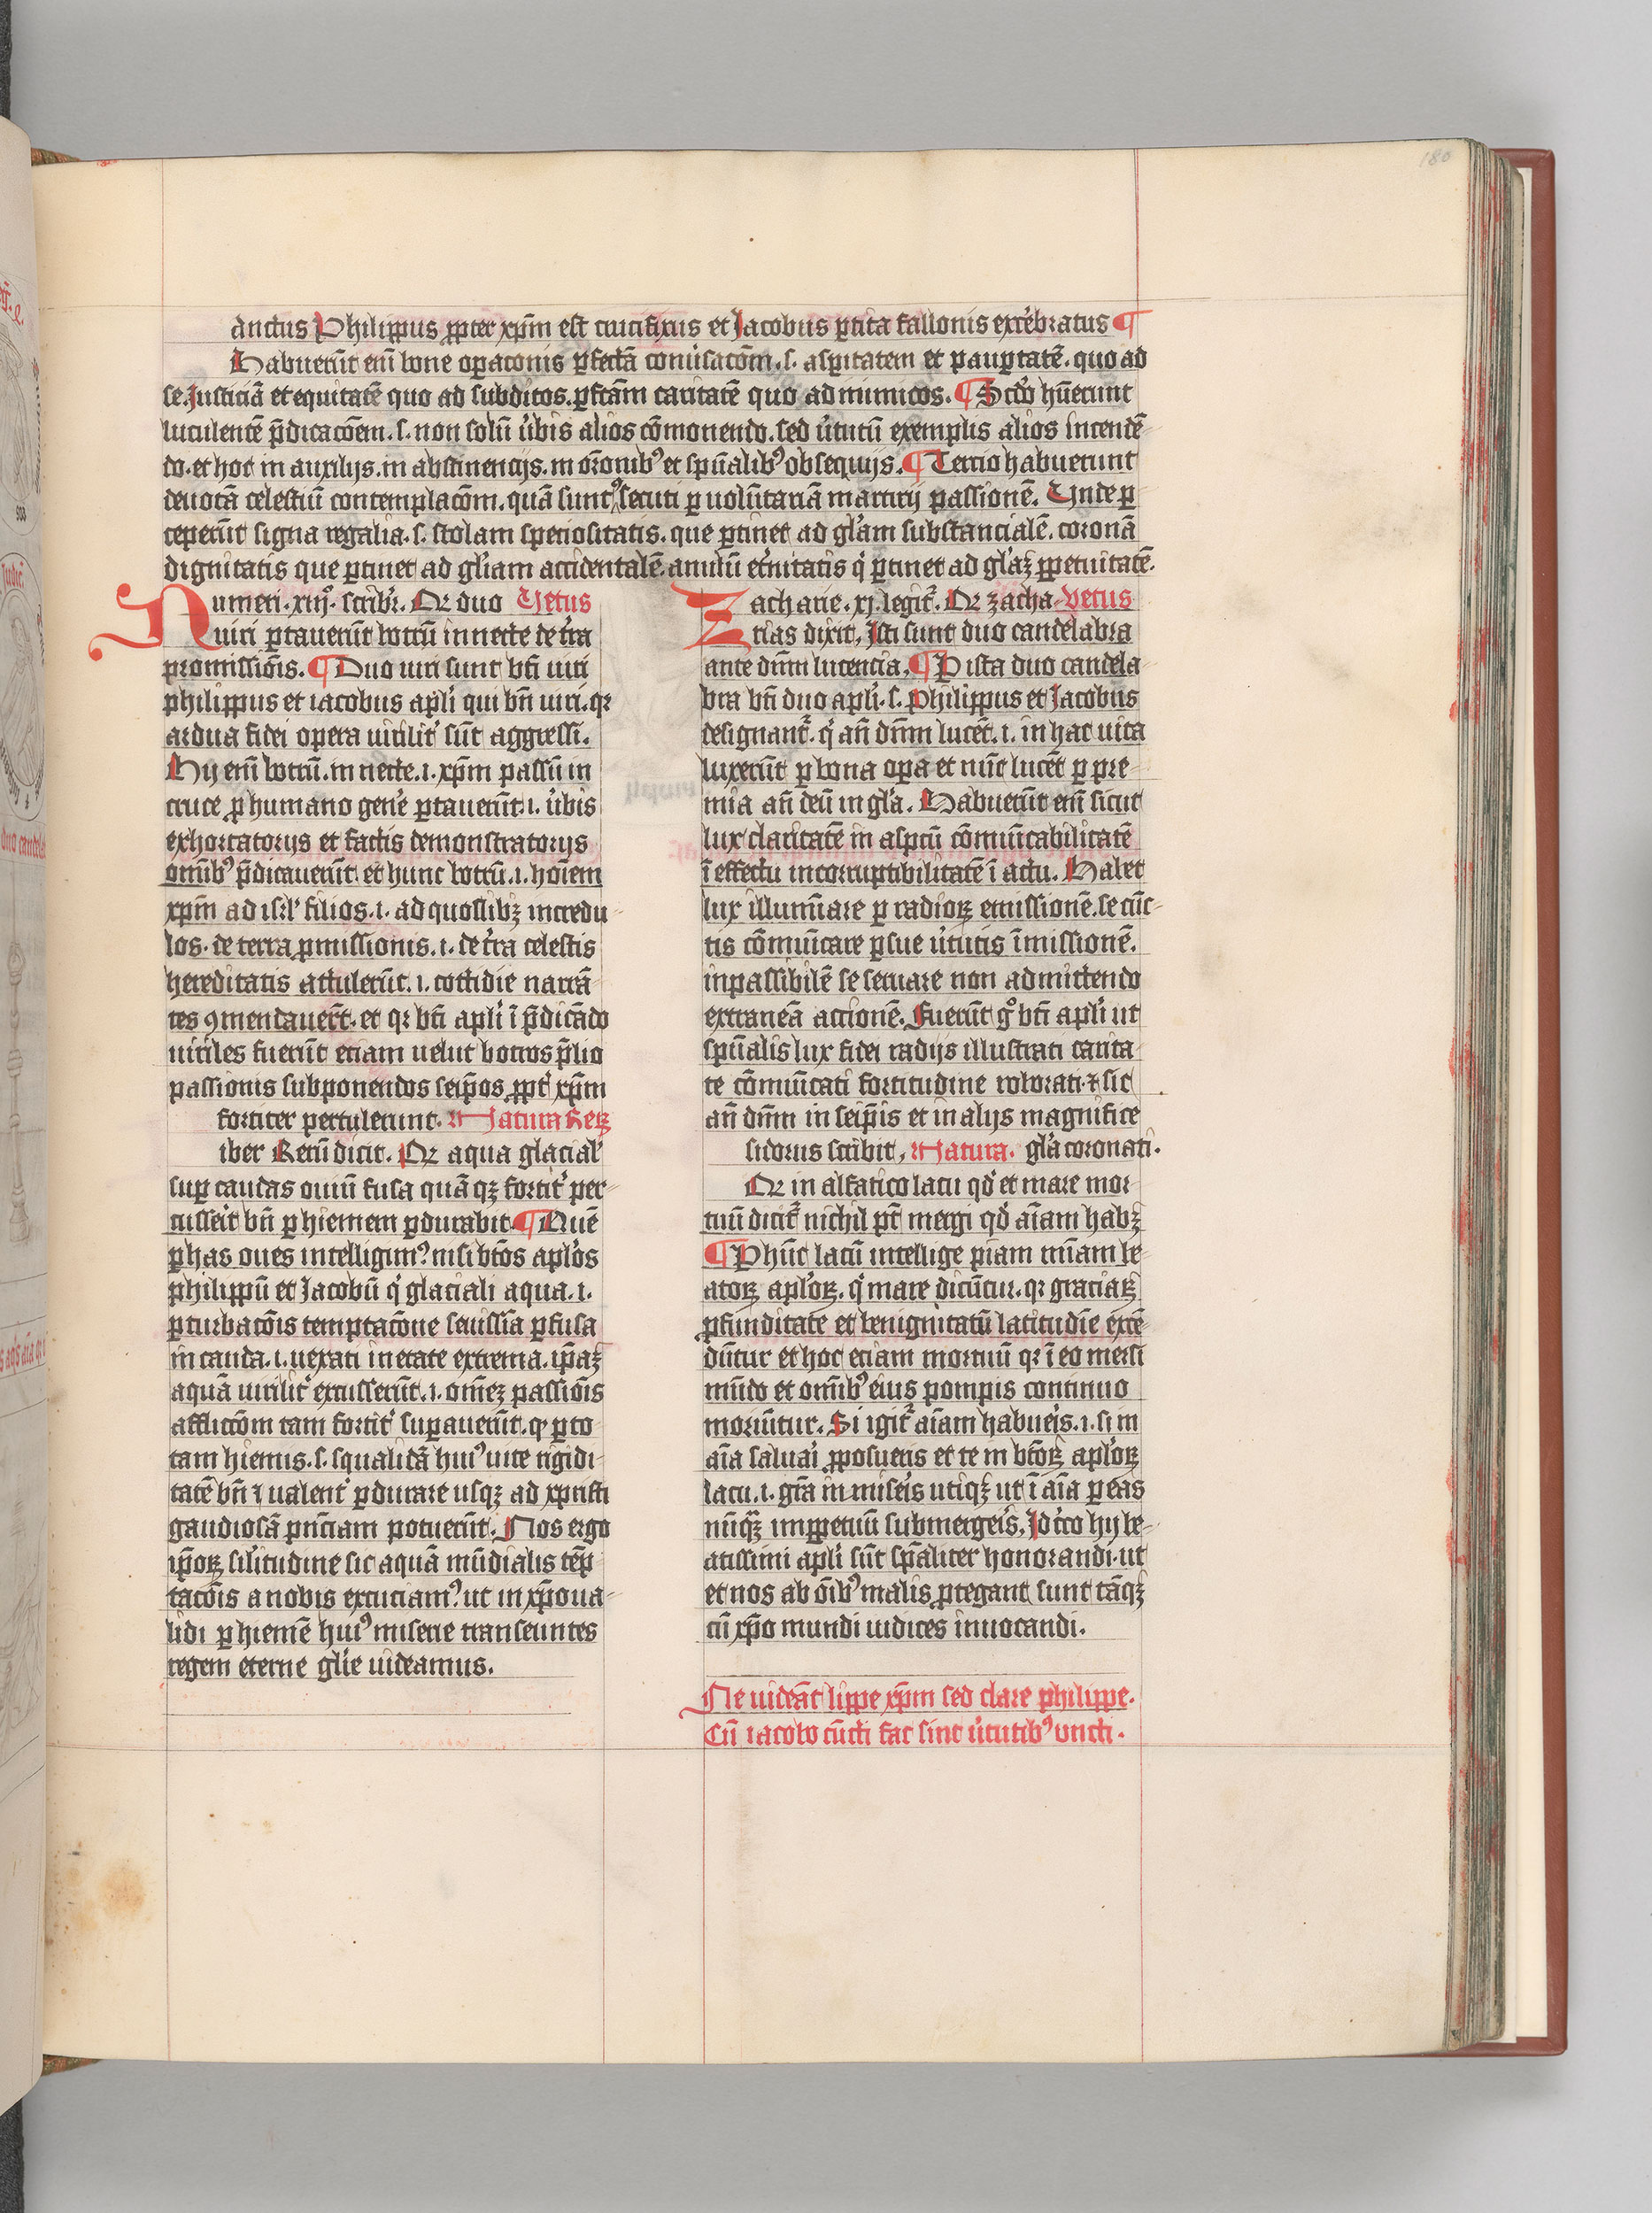 180
anctus Philippus ꝓpter xp̄m est crucifixus et Jacobus ꝑtica fallonis excereb̄ratus ¶
Habuerūt em̄ bone oꝑac̄onis ꝑfectā conuersac̄om̄. s. asꝑitatem et pauꝑtatē. quo ad
se. Justiciā et equitatē quo ad subditos. ꝑfcām caritatē quo ad inimicos. ¶ Scd̄o hūerunt
luculentē p̄dicac̄oem. s. non solū ūbis alios cōmonendo. sed ūtutū exemplis alios incendē
do. et hoc in auxilijs. in abstinencijs. in or̄onibꝰ et spūalibꝰ obsequijs. ¶ Tercio habuerunt
deuotā celestiū contemplac̄om. quā suntꝰ secuti ꝑ uolūtariā martirij passionē. Unde ꝑ
ceperūt signa regalia. s. stolam speciositatis. que ꝑtinet ad gl̄am substancialē. coronā
dignitatis que ꝑtinet ad gl̄iam accidentalē. anulū et̄nitatis q̄ ꝑtinet ad gl̄aꝫ ꝑpetuitatē.
Numeri. xiijͦ. scribr̄. Qꝛ duo Uetus
uiri ꝑtauerūt botrū in uecte de t̄ra
promissiōis. ¶ Duo uiri sunt bt̄i uiri
philippus et iacobus apl̄i qui bn̄ uiri. qꝛ
ardua fidei opera uirilit̄ sūt aggressi.
Hij em̄ botrū. in uecte. i. xp̄m passū in
cruce ꝓ humano gen̄e ꝑtauerūt. i. ūbis
exhortatorijs et factis demonstratorijs
om̄ibꝰ p̄dicauerūt et hunc botrū. i. hōiem
xp̄m ad isrl̄ filios. i. ad quoslibꝫ incredu
los. de terra ꝓmissionis. i. de t̄ra celestis
hereditatis attulerūt. i. cottidie narrā
tes ꝯmendauer̄t. et qꝛ bt̄i apl̄i ī p̄dicādo
uiriles fuerūt eciam uelut botros p̄lio
passionis subponendos seip̄os ꝓpt̄ xp̄m
fortiter pertulerunt. Natura Reꝝ
iber Rerū dicit. Qꝛ aqua glacial̄
suꝑ caudas ouiū fusa quā qꝫ fortit̄ per
cusseit bn̄ ꝑ hiemem ꝑdurabit. ¶ Quē
ꝑ has oues intelligimꝰ nisi btōs apl̄os
philippū et Jacobū q̄ glaciali aqua. i.
ꝑturbac̄ois temptac̄one seuissīa ꝑfusa
in cauda. i. uexati in etate extrema. ip̄aꝫ
aquā uirilit̄ excusserūt. i. om̄eꝫ passiōis
afflicōm tam fortit̄ suꝑauerūt. qꝙ ꝑ to
tam hiemis. s. squalidā huiꝰ uite rigidi
tatē bn̄ ⁊ ualent̄ ꝑdurare usqꝫ ad xpristi
gaudiosā pn̄ciam potuerūt. Nos ergo
ip̄oꝝ sil̄itudine sic aquā mūdialis tēp
tac̄ois a nobis excuciamꝰ ut in xp̄o ua
lidi ꝑ hiemē huiꝰ miserie transeuntes
regem eterne gl̄ie uideamus.
Zacharie. xj. legit̄. Qꝛ zacha Vetus
rias dixit, Isti sunt duo candelabra
ante dn̄m lucencia. ¶ P ista duo candela
bra bt̄i duo apl̄i. s. Philippus et Jacobus
designant̄. q̄ an̄ dn̄m lucēt. i. in hac uita
luxerūt ꝑ bona oꝑa et nūc lucēt ꝑ pre
mia an̄ deū in gl̄a. Habuerūt em̄ sicut
lux claritatē in aspctū cōmūicabilitatē
ī effectu incorruptibilitatē ī actu. Habet
lux illumīare ꝑ radioꝝ emissionē. se cūc
tis cōmūicare ꝑ sue ūtutis īmissionē.
inpassibilē se seruare non admittendo
extraneā accionē. Fuerūt gͦ bt̄i apl̄i ut
spūalis lux fidei radijs illustrati carita
te cōmūicati fortitudine roborati. ⁊ sic
an̄ dn̄m in seip̄is et in alijs magnifice
sidorus scribit, Natura. gl̄a coronati.
Qꝛ in alfatico lacu qd̄ et mare mor
tuū dicit̄ nichil pt̄ mergi qd̄ aīam habꝫ
¶ P hūc lacū intellige piam mīam be
atoꝝ apl̄oꝝ. q̄ mare dicūtur. qꝛ graciaꝝ
ꝓfunditate et benignitatū latitudīe excē
dūtur et hoc eciam mortuū qꝛ ī eo mersi
mūdo et om̄ibꝰ eius pompis continuo
moriūtur. Si igit̄ aīam habueīs. i. si in
aīa saluaī ꝓposueris et te in bt̄oꝝ apl̄oꝝ
lacu. i. gr̄a īmiseīs utiqꝫ ut ī aīa ꝑeas
nūqꝫ imꝑpetuū submergeīs. Idcc̄o hij be
atissimi apl̄i sūt sp̄aliter honorandi. ut
et nos ab oībꝰ malis ꝓtegant sunt tāqꝫ
cū xp̄o mundi iudices inuocandi.
Ne uideāt lippe xp̄m sed clare philippe.
Cū iacobo cūcti fac sint ūtutibꝰ uncti.